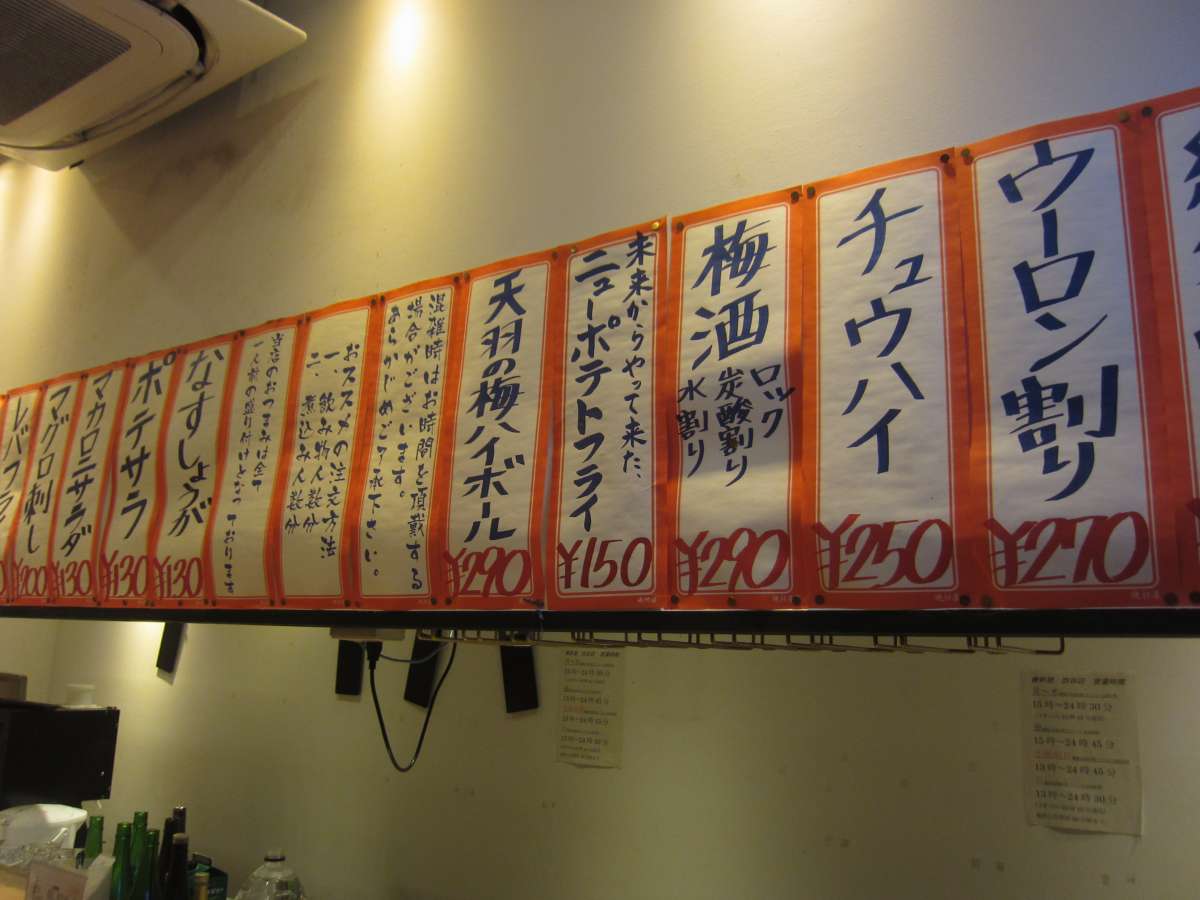 ウーロン割り
¥270
チュウハイ
¥250
梅酒
ロック
炭酸割り
水割り
¥290
未来からやって来た、
ニューポテトフライ
¥150
天羽の梅ハイボール
¥290
混雑時はお時間を頂戴する
場合がございます。
あらかじめご了承下さい。
おススメの注文方法
一、飲み物人数分
二、煮込み人数分
当店のおつまみは全て
一人前の盛り付けとなっております
なすしょうが
¥130
ポテサラ
¥130
マカロニサラダ
¥130
マグロ刺し
¥200
レバフライ
営業時間
15時～24時30分
15時～24時45分
13時～24時45分
13時～24時30分